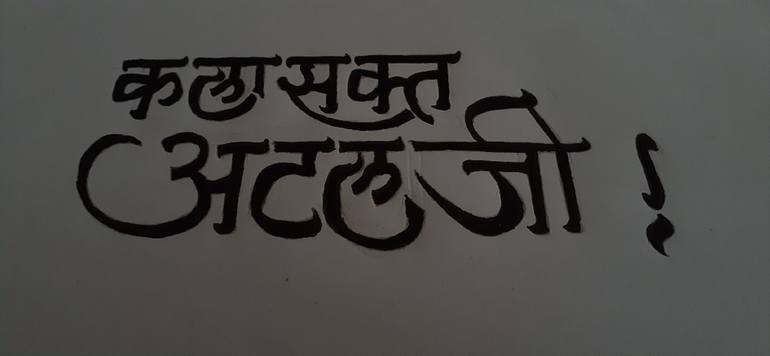 कलासक्त
अटलजी !